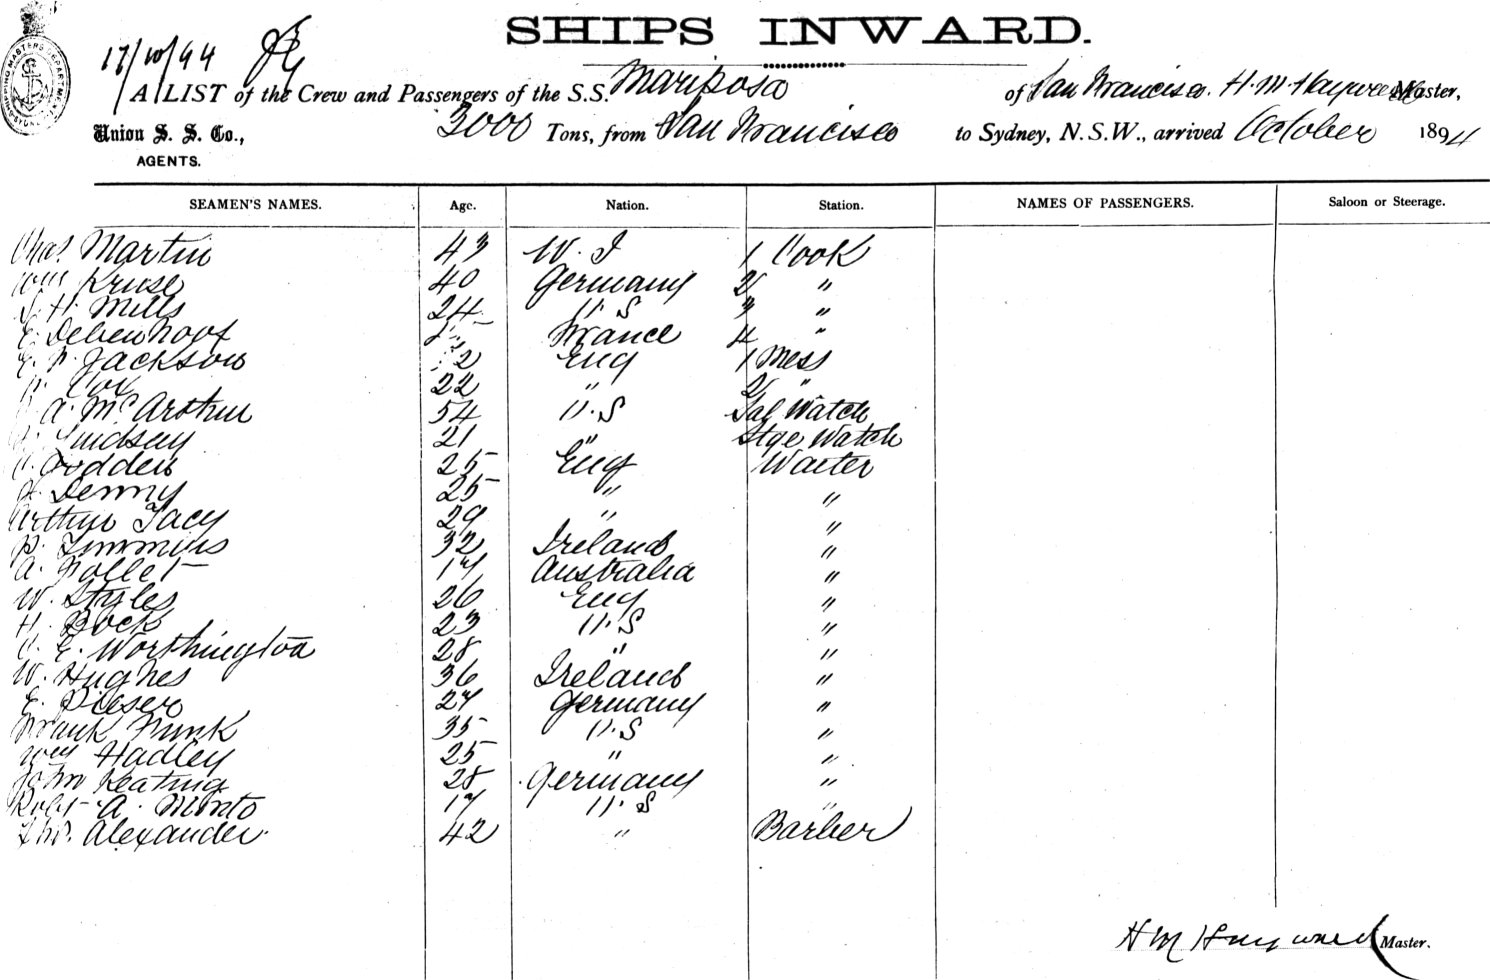 SHIPS INWARD.
17/10/94
A LIST of the Crew and Passengers of the S.S. Mariposa of San Francisco. H. M. Hayward Master,
Union S. S. Co., 3000 Tons, from San Francisco to Sydney, N.S.W., arrived October 1894
AGENTS.
SEAMEN'S NAMES. Age. Nation. Station. NAMES OF PASSENGERS. Saloon or Steerage.
Chas. Martin 43 W. I 1 Cook
Wm Kruse 40 Germany 2 "
H. Mills 24 U.S 3 "
E. Debenhoof France 4 "
E. Jackson Eng 1 Mess
Cox 22 " 2 "
A. McArthur 54 U.S Sal Watch
Lindsay 21 " Stge Watch
Godden 25 Eng Waiter
Denny 25 " "
Arthur Tacy 29 " "
P. Timmins 32 Ireland "
A. Follet 17 Australia "
W. Styles 26 Eng "
H. Bock 23 U.S "
E. Worthington 28 " "
W. Hughes 36 Ireland "
E. Pieser 27 Germany "
Frank Funk 35 U.S "
Wm Hadley 25 " "
John Keating 28 Germany "
Robt A. Minto 17 U.S "
Thos. Alexander 42 " Barber
H M Hayward Master.